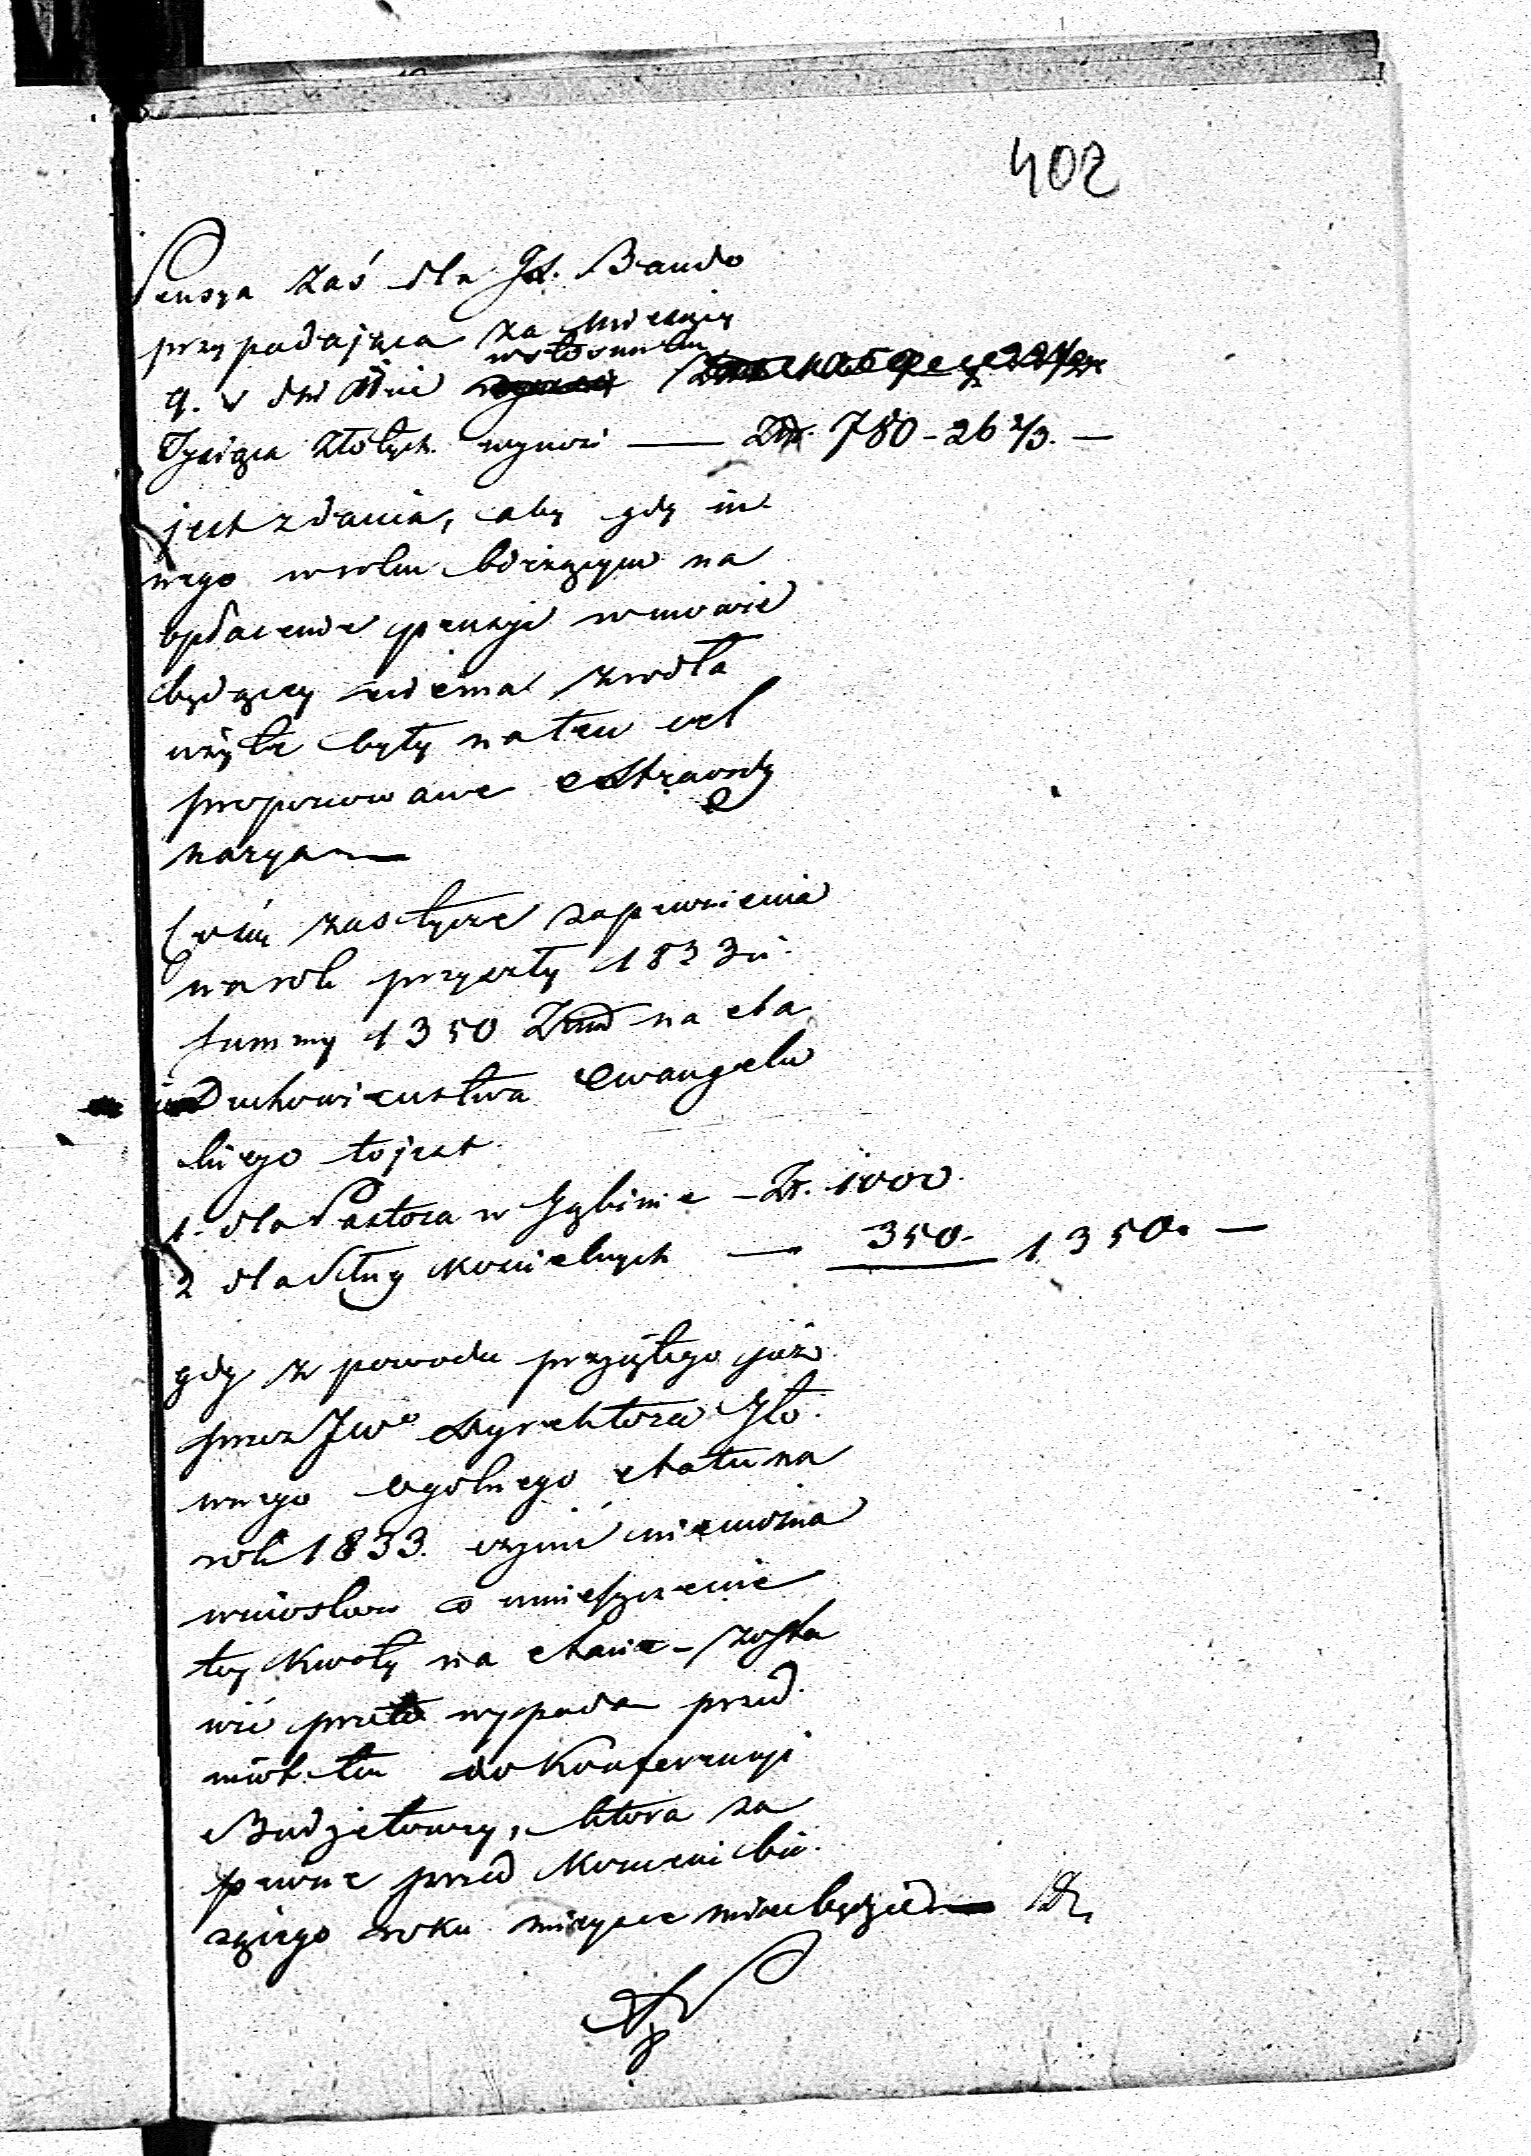 402
Pensya zaś dla JX. Bando
przypadająca za Miesięcy
9. i dni
w stosunku
Tysiąca Złotych wynosi — Zł. 780 - 26 2/3. —
jest zdania, aby gdy in
nego w roku bieżącym na
opłacenie pensyi w mowie
będącey niema źrodła
użyte były na ten cel
proponowane extraordy
narya —
Co się zaś tycze zapewnienia
na rok przyszły 1833
Summy 1350 Złł na eta
Duchowieństwa Ewangelic
kiego to jest
1. dla Pastora w Gąbinie - Zł. 1000
2 dla Sług Kościelnych — 350. 1350. —
gdy z powodu przyjętego już
przez JWo Dyrektora Głó.
wnego ogolnego etatu na
rok 1833. czynić niemożna
wniosku o umieszczenie
tey Kwoty na etacie - zosta
wić przeto wypada przed
miot ten do Konferencyi
Budżetowey, ktora za
pewne przed Końcem bie.
żącego roku mieysce mieć będzie —